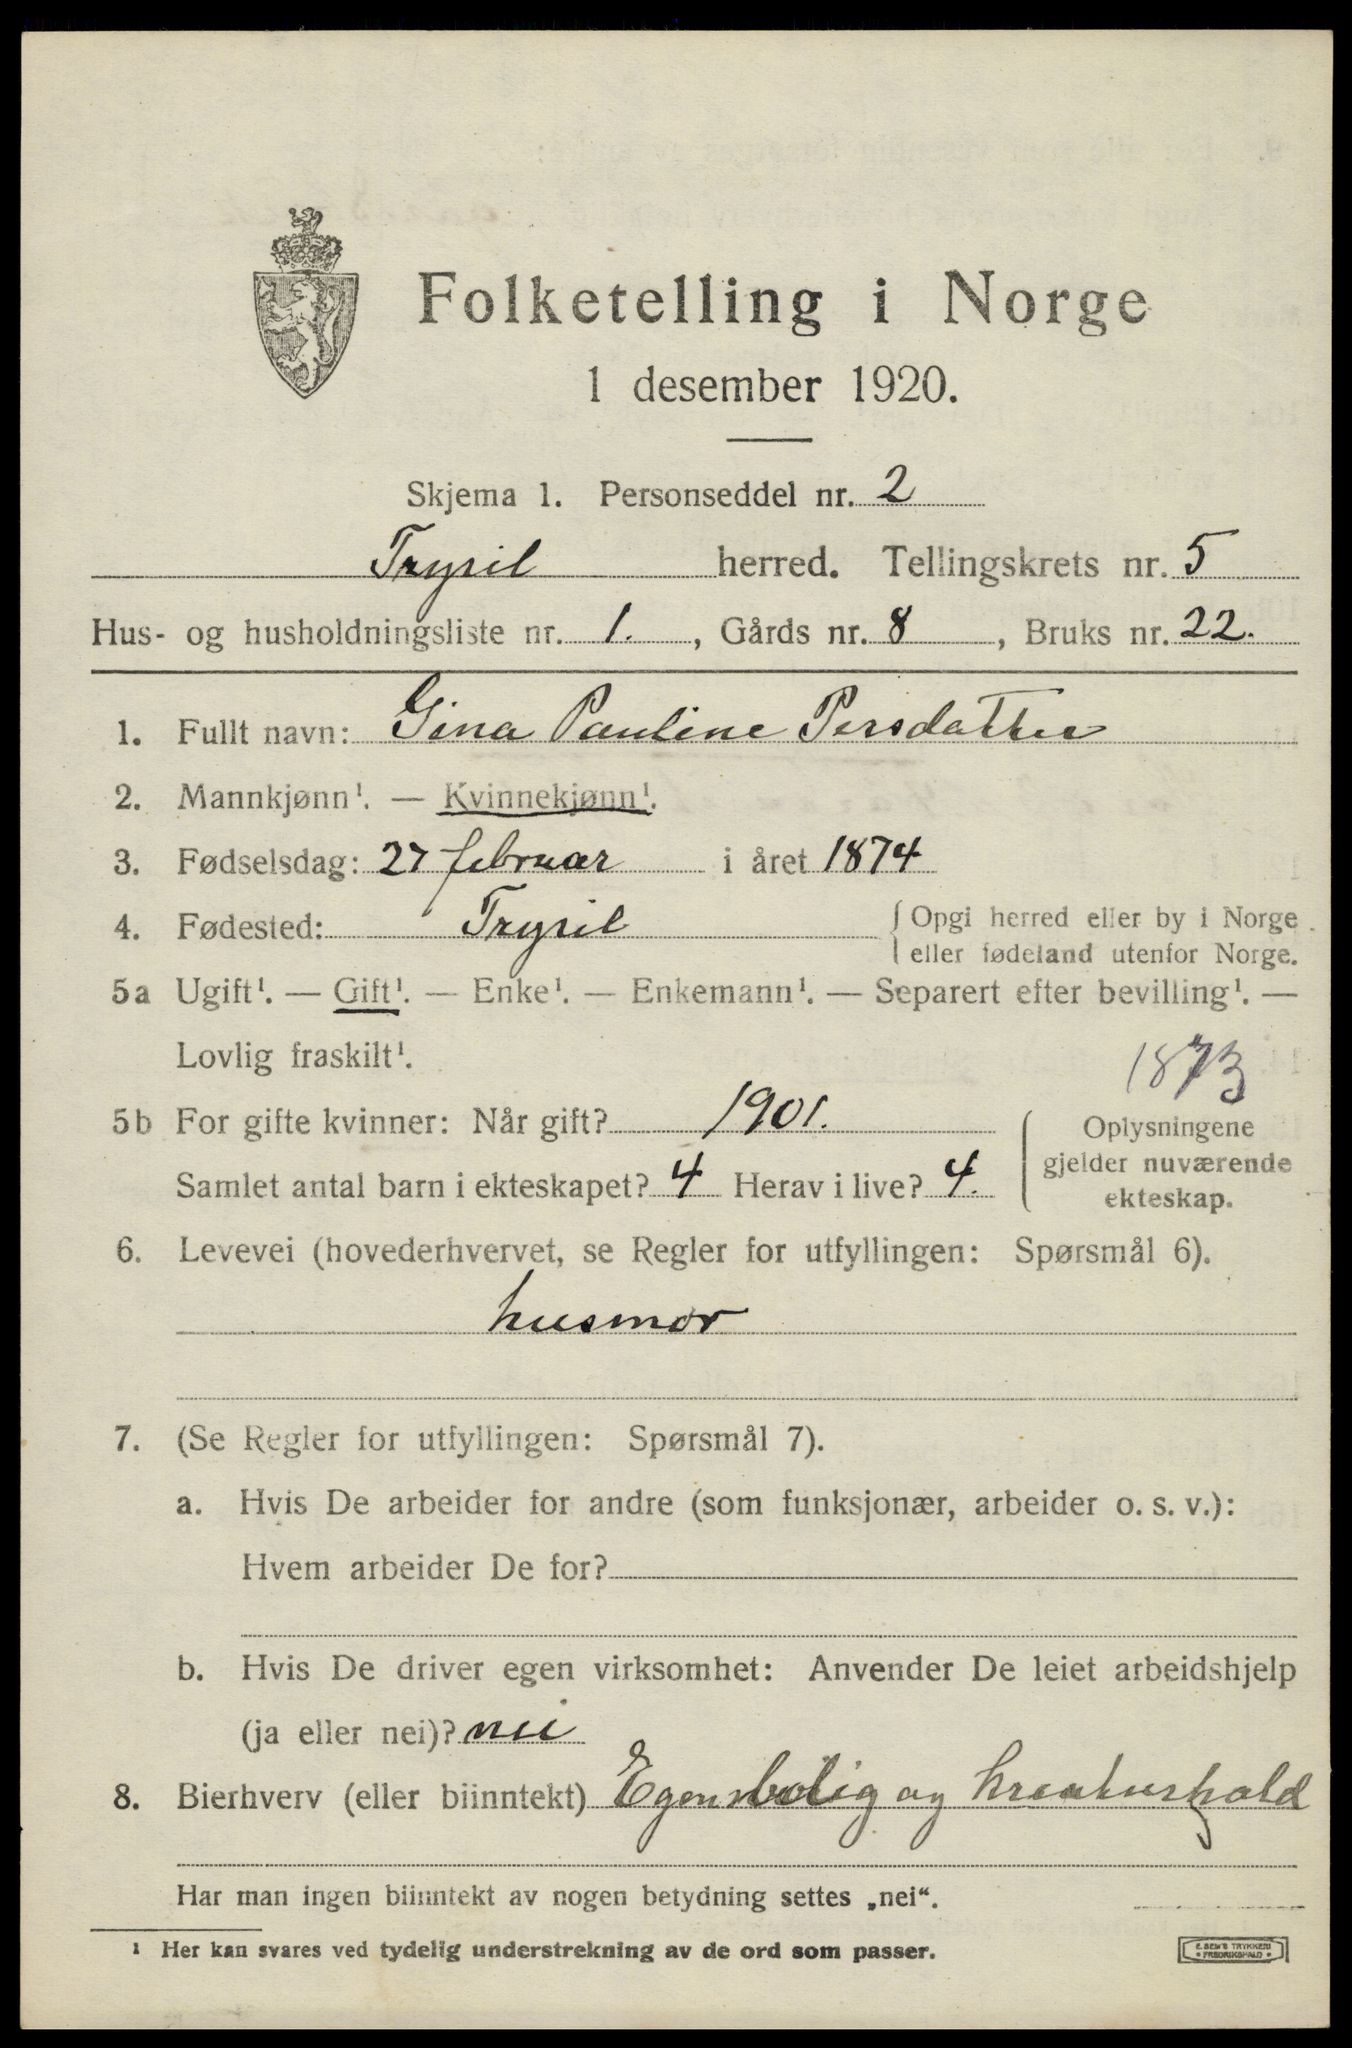 Folketelling i Norge
1 desember 1920.
Skjema 1. Personseddel nr. 2
Trysil herred. Tellingskrets nr. 5
Hus- og husholdningsliste nr. 1. , Gårds nr. 8 , Bruks nr. 22.
1. Fullt navn: Gina Pauline Persdatter
2. Mannkjønn¹. — Kvinnekjønn¹.
3. Fødselsdag: 27 februar i året 1874
4. Fødested: Trysil { Opgi herred eller by i Norge
eller fødeland utenfor Norge.
5a Ugift¹. — Gift¹. — Enke¹. — Enkemann¹. — Separert efter bevilling¹. —
Lovlig fraskilt¹.
1873
5b For gifte kvinner: Når gift? 1901. { Oplysningene
gjelder nuværende
ekteskap.
Samlet antal barn i ekteskapet? 4 Herav i live? 4.
6. Levevei (hovederhvervet, se Regler for utfyllingen: Spørsmål 6).
husmor
7. (Se Regler for utfyllingen: Spørsmål 7).
a. Hvis De arbeider for andre (som funksjonær, arbeider o. s. v.):
Hvem arbeider De for?
b. Hvis De driver egen virksomhet: Anvender De leiet arbeidshjelp
(ja eller nei)? nei
8. Bierhverv (eller biinntekt) Egen bolig og kreaturhold
Har man ingen biinntekt av nogen betydning settes „nei“.
¹ Her kan svares ved tydelig understrekning av de ord som passer.
E. SEM'S TRYKKERI
* FREDRIKSHALD *